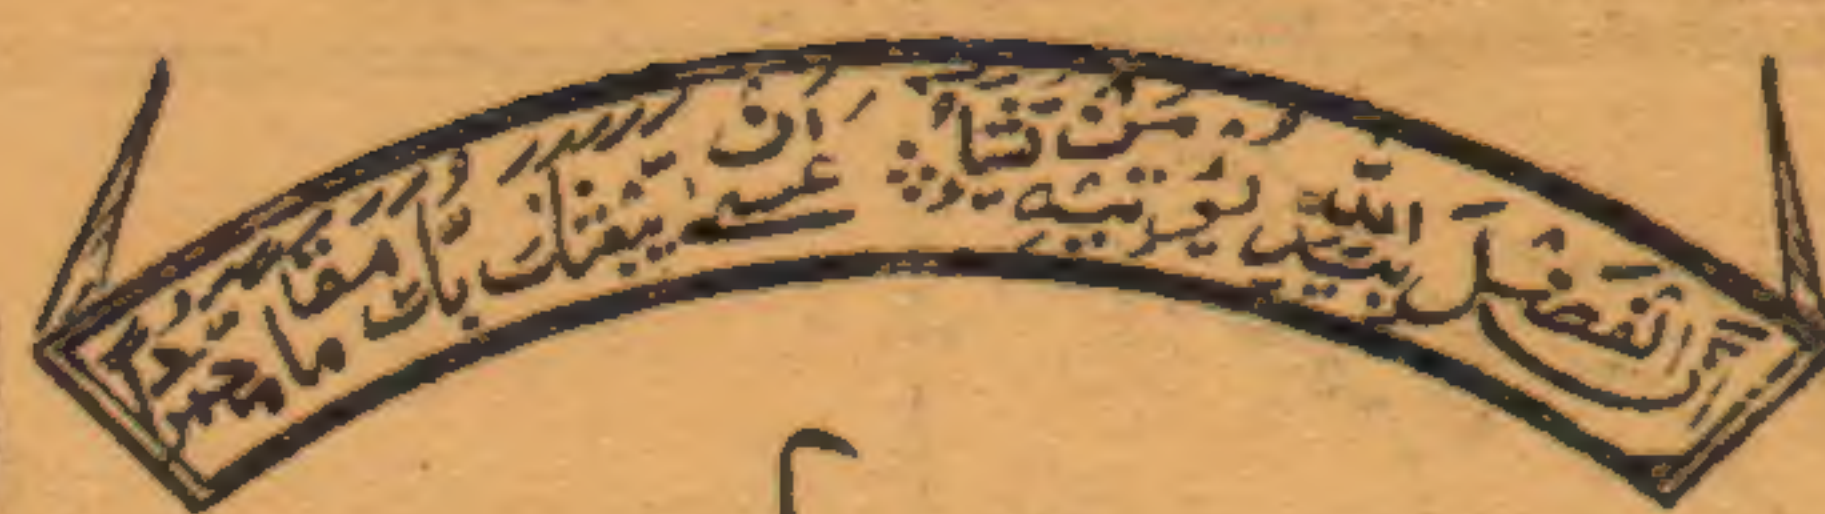 اِنَّ الْفَضْلَ بِيَدِ اللّٰهِ يُؤْتِيْهِ مَنْ يَّشَآءُ ؞ عَسٰٓى اَنْ يَّبْعَثَكَ رَبُّكَ مَقَامًا مَّحْمُوْدًا